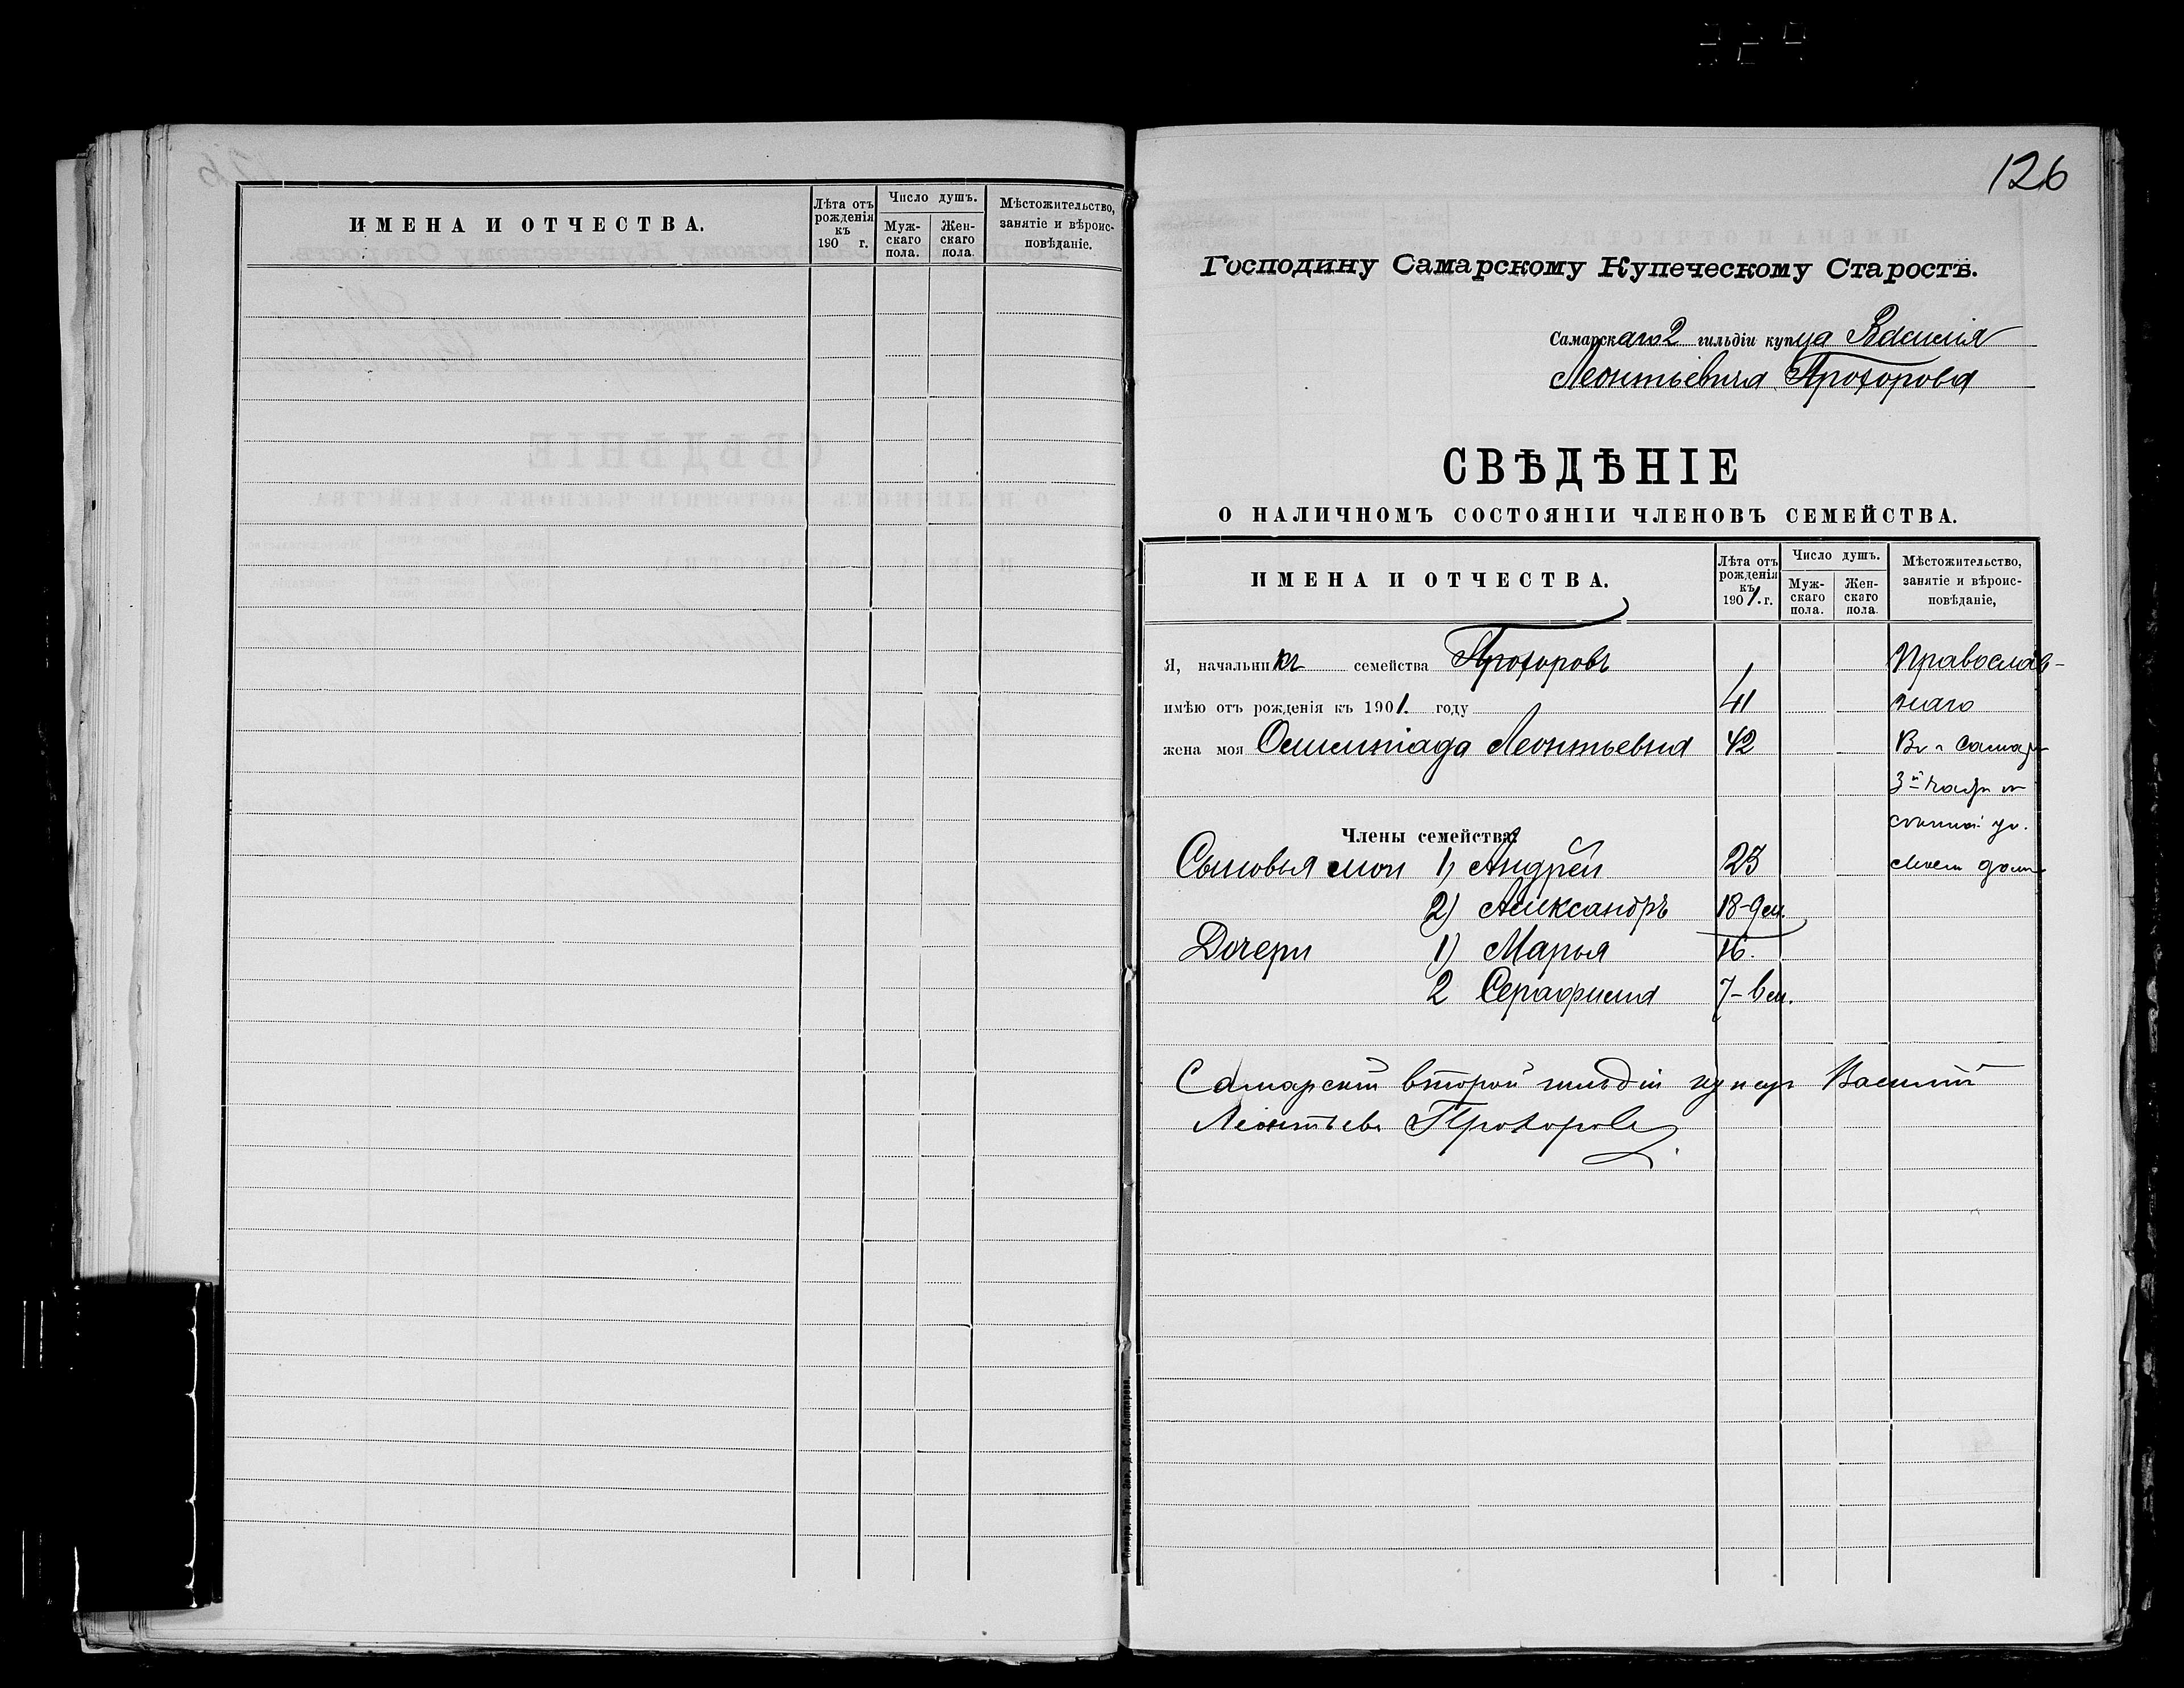 ИМЕНА И ОТЧЕСТВА.
Лѣта отъ рожденія къ 190 г.
Число душъ.
Муж-скаго пола.
Жен-скаго пола.
Мѣстожительство, занятіе и вѣроис-повѣданіе.
126
Господину Самарскому Купеческому Старостѣ.
Самарскаго 2 гильдіи купца Василія
Леонтьевича Прохорова
СВѢДѢНІЕ
О НАЛИЧНОМЪ СОСТОЯНІИ ЧЛЕНОВЪ СЕМЕЙСТВА.
ИМЕНА И ОТЧЕСТВА.
Лѣта отъ рожденія къ 1901. г.
Число душъ.
Муж-скаго пола.
Жен-скаго пола.
Мѣстожительство, занятіе и вѣроис-повѣданіе,
Я, начальникъ семейства Прохоровъ Православ-
имѣю отъ рожденія къ 1901. году 41 наго
жена моя Олимпіада Леонтьевна 42 Въ г Самар
3й части
ул.
Члены семейства:
Сыновья мои 1) Андрей 23 своем доме
2) Александръ 18-9 м.
Дочери 1) Марья 16.
2 Серафима 7-6 м.
Самарскій второй гильдіи купецъ Василий
Леонтьевъ Прохоровъ
Самара. Тип. Зав. Д. С. Лошкарева.